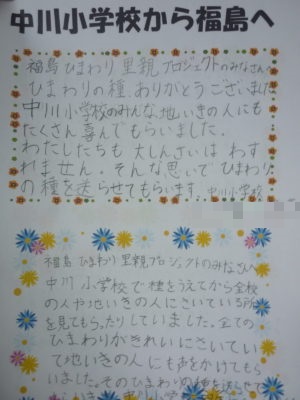 中川小学校から福島へ
福島ひまわり里親プロジェクトのみなさんへ
ひまわりの種、ありがとうございました
中川小学校のみんな、地いきの人にも
たくさん喜んでもらいました。
わたしたちも大しんさいはわす
れません。そんな思いでひまわり
の種を送らせてもらいます。中川小学校
福島ひまわり里親プロジェクトのみなさんへ
中川小学校で種をうえてから全校
の人や地いきの人にさいている所
を見てもらったりしていました。全ての
ひまわりがきれいにさいてい
て地いきの人にも声をかけてもら
いました。そのひまわりの種を送らせて